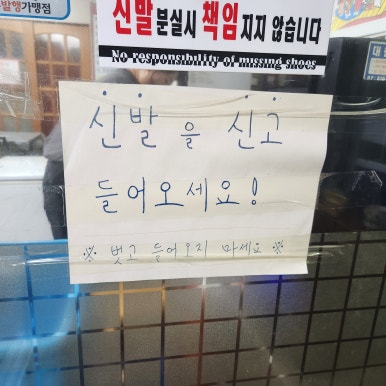 발행가맹점
신발 분실시 책임 지지 않습니다
No responsibility of missing shoes
신발을 신고
들어오세요!
※ 벗고 들어오지 마세요 ※